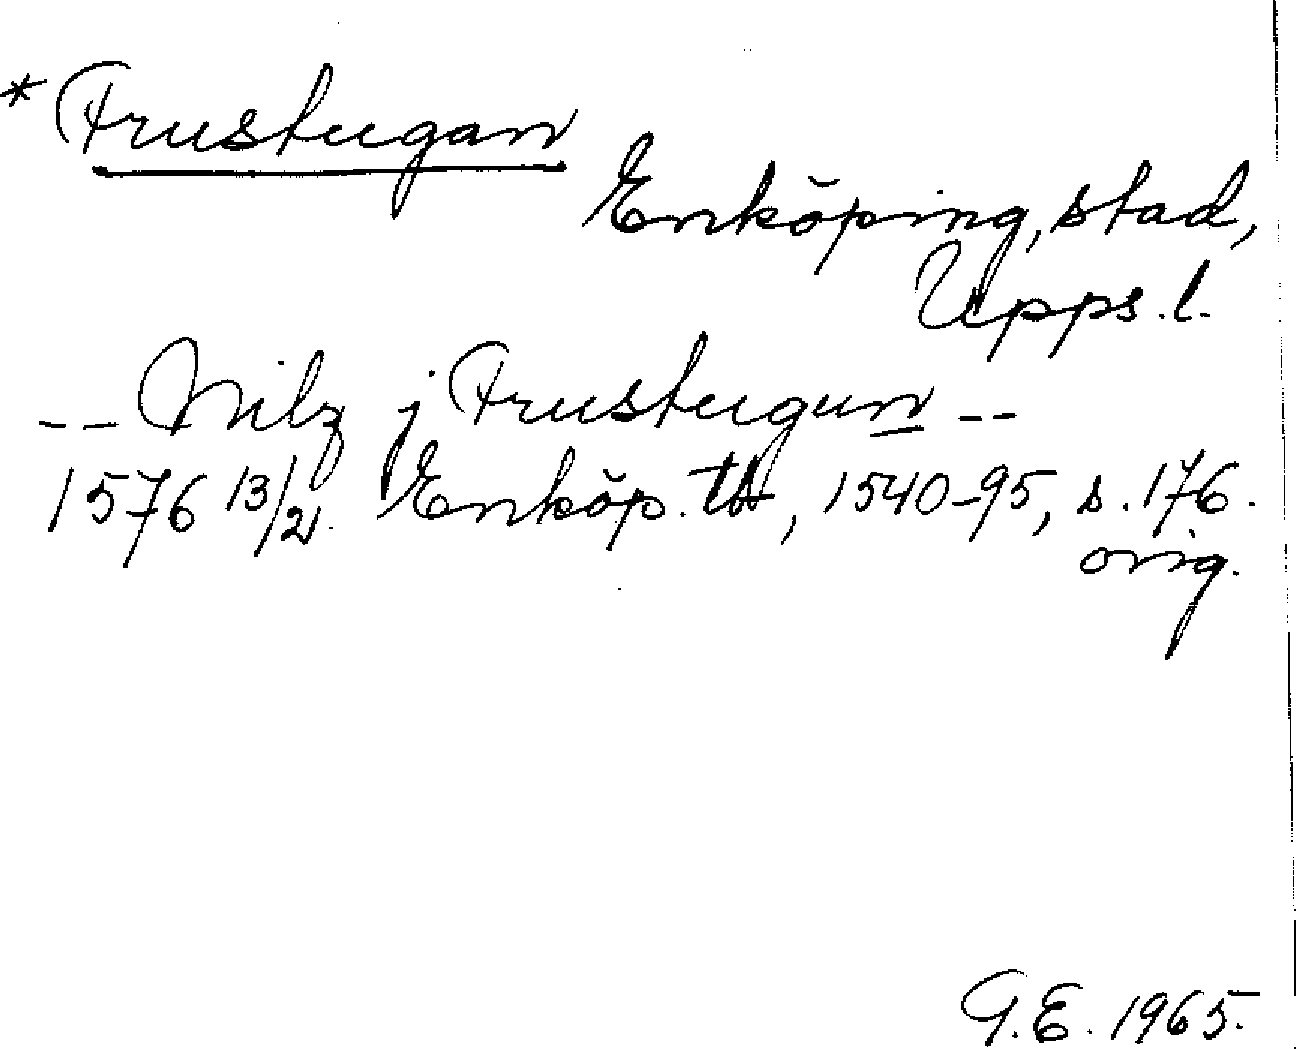 * Frustugan
Enköping, stad,
Upps. l.
-- Nilz j Frustugun --
1576 13/2. Enköp. tb, 1540-95, s. 176.
orig.
G.E. 1965.